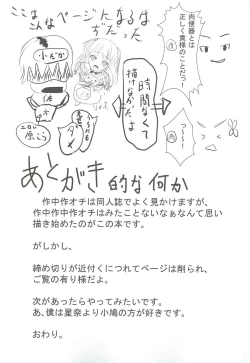 ここは
こんなページになるは
ずだった
時間なくて
描けなかったよ
肉便器とは
正しく貴様のことだっ!
あとがき的な何か
作中作オチは同人誌でよく見かけますが、
作中作中作オチはみたことないなぁなんて思い
描き始めたのがこの本です。
がしかし、
締め切りが近付くにつれてページは削られ、
ご覧の有り様だよ。
次があったらやってみたいです。
あ、僕は星奈より小鳩の方が好きです。
おわり。